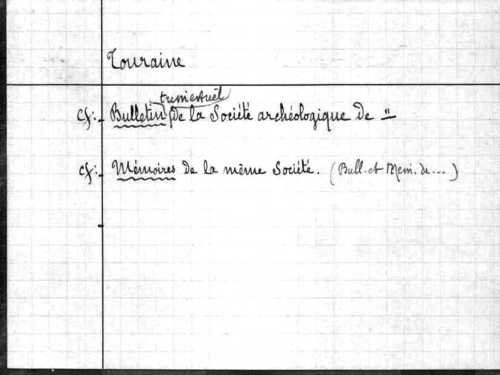 Touraine
trimestriel
cf:- Bulletin de la Société archéologique de =
cf:- Mémoires de la même Société. (Bull. et Mém. de...)